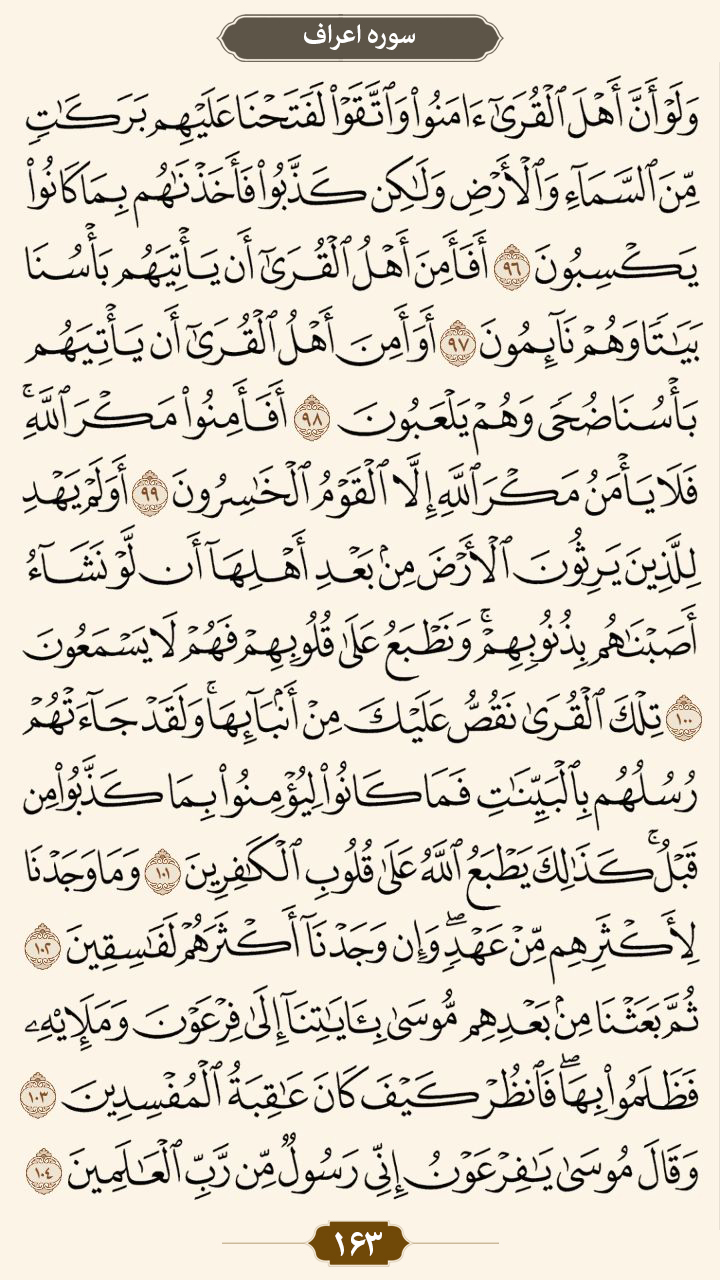 سوره اعراف
وَلَوْ أَنَّ أَهْلَ ٱلْقُرَىٰٓ ءَامَنُوا۟ وَٱتَّقَوْا۟ لَفَتَحْنَا عَلَيْهِم بَرَكَـٰتٍ
مِّنَ ٱلسَّمَآءِ وَٱلْأَرْضِ وَلَـٰكِن كَذَّبُوا۟ فَأَخَذْنَـٰهُم بِمَا كَانُوا۟
يَكْسِبُونَ ٩٦ أَفَأَمِنَ أَهْلُ ٱلْقُرَىٰٓ أَن يَأْتِيَهُم بَأْسُنَا
بَيَـٰتًا وَهُمْ نَآئِمُونَ ٩٧ أَوَأَمِنَ أَهْلُ ٱلْقُرَىٰٓ أَن يَأْتِيَهُم
بَأْسُنَا ضُحًى وَهُمْ يَلْعَبُونَ ٩٨ أَفَأَمِنُوا۟ مَكْرَ ٱللَّهِ ۚ
فَلَا يَأْمَنُ مَكْرَ ٱللَّهِ إِلَّا ٱلْقَوْمُ ٱلْخَـٰسِرُونَ ٩٩ أَوَلَمْ يَهْدِ
لِلَّذِينَ يَرِثُونَ ٱلْأَرْضَ مِنۢ بَعْدِ أَهْلِهَآ أَن لَّوْ نَشَآءُ
أَصَبْنَـٰهُم بِذُنُوبِهِمْ ۚ وَنَطْبَعُ عَلَىٰ قُلُوبِهِمْ فَهُمْ لَا يَسْمَعُونَ
١٠٠ تِلْكَ ٱلْقُرَىٰ نَقُصُّ عَلَيْكَ مِنْ أَنۢبَآئِهَا ۚ وَلَقَدْ جَآءَتْهُمْ
رُسُلُهُم بِٱلْبَيِّنَـٰتِ فَمَا كَانُوا۟ لِيُؤْمِنُوا۟ بِمَا كَذَّبُوا۟ مِن
قَبْلُ ۚ كَذَٰلِكَ يَطْبَعُ ٱللَّهُ عَلَىٰ قُلُوبِ ٱلْكَـٰفِرِينَ ١٠١ وَمَا وَجَدْنَا
لِأَكْثَرِهِم مِّنْ عَهْدٍ ۖ وَإِن وَجَدْنَآ أَكْثَرَهُمْ لَفَـٰسِقِينَ ١٠٢
ثُمَّ بَعَثْنَا مِنۢ بَعْدِهِم مُّوسَىٰ بِـَٔايَـٰتِنَآ إِلَىٰ فِرْعَوْنَ وَمَلَإِي۟هِۦ
فَظَلَمُوا۟ بِهَا ۖ فَٱنظُرْ كَيْفَ كَانَ عَـٰقِبَةُ ٱلْمُفْسِدِينَ ١٠٣
وَقَالَ مُوسَىٰ يَـٰفِرْعَوْنُ إِنِّى رَسُولٌ مِّن رَّبِّ ٱلْعَـٰلَمِينَ ١٠٤
۱۶۳